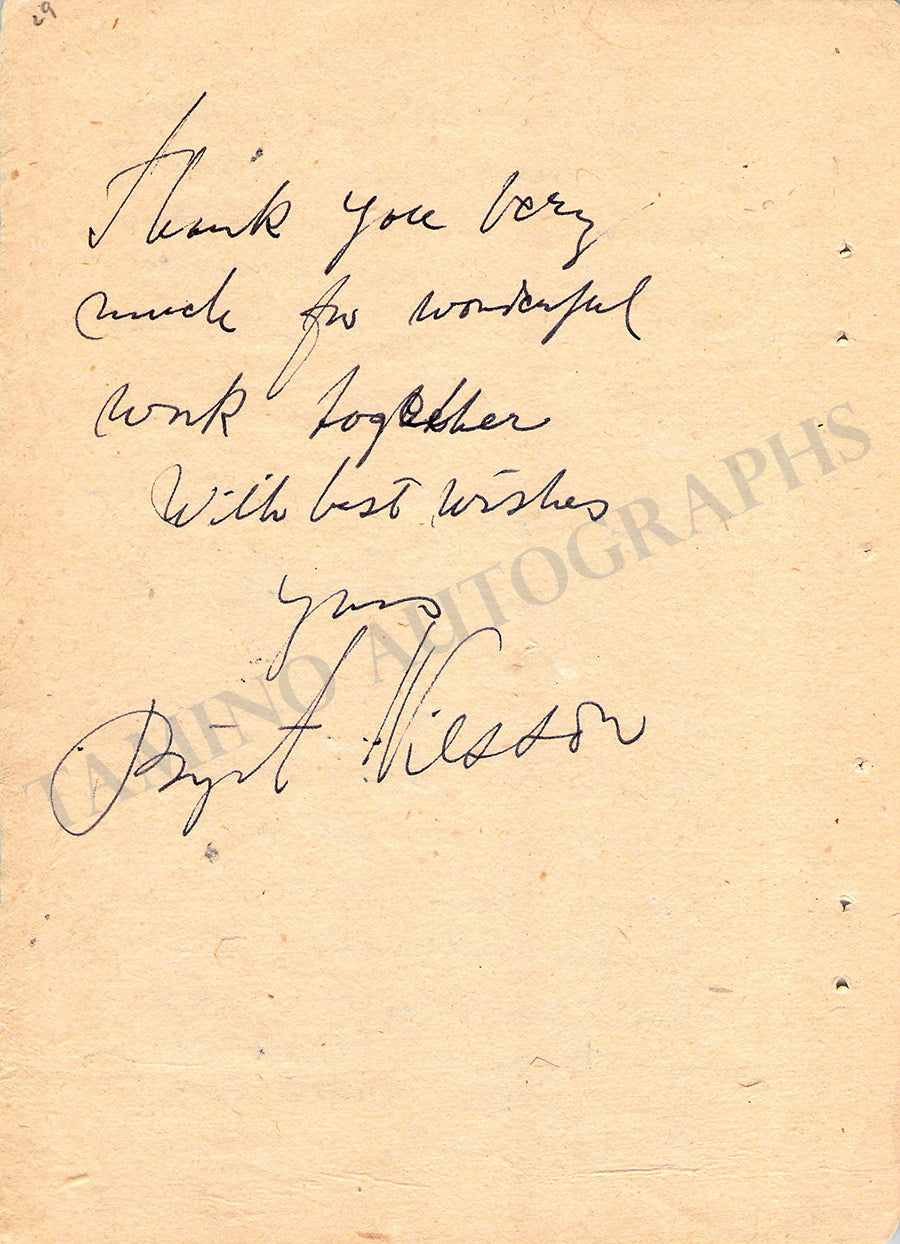 29
Thank you very
much for wonderful
work together
With best wishes
yours
Birgit Nilsson
TAMINO AUTOGRAPHS